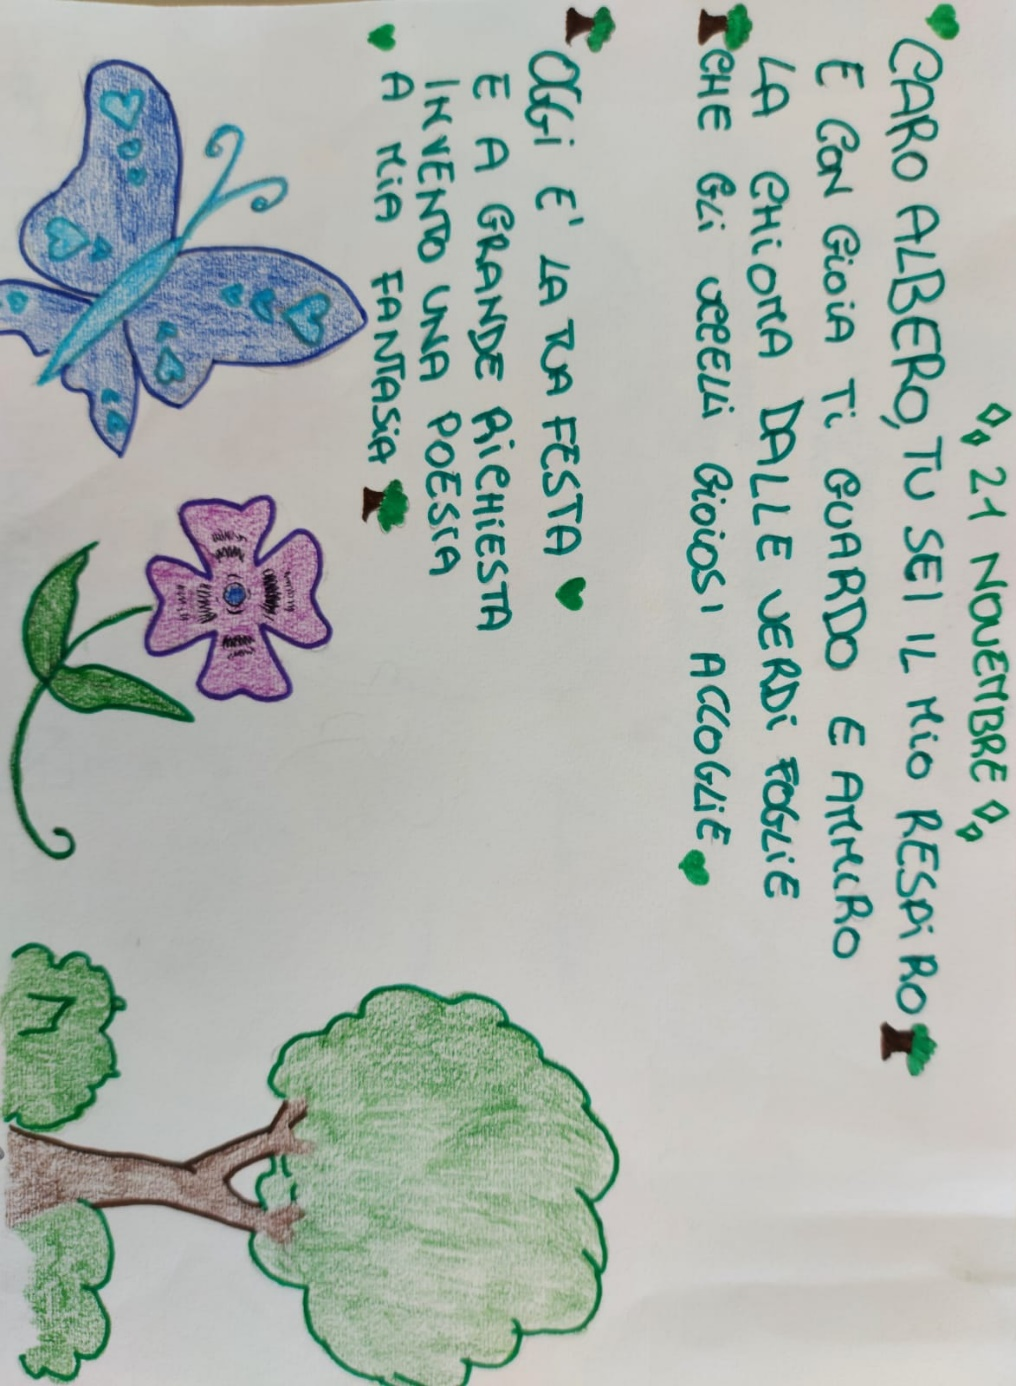 21 NOVEMBRE
CARO ALBERO, TU SEI IL MIO RESPIRO
E CON GIOIA TI GUARDO E AMMIRO
LA CHIOMA DALLE VERDI FOGLIE
CHE GLI UCCELLI GIOIOSI ACCOGLIE
OGGI E' LA TUA FESTA
E A GRANDE RICHIESTA
INVENTO UNA POESIA
A MIA FANTASIA